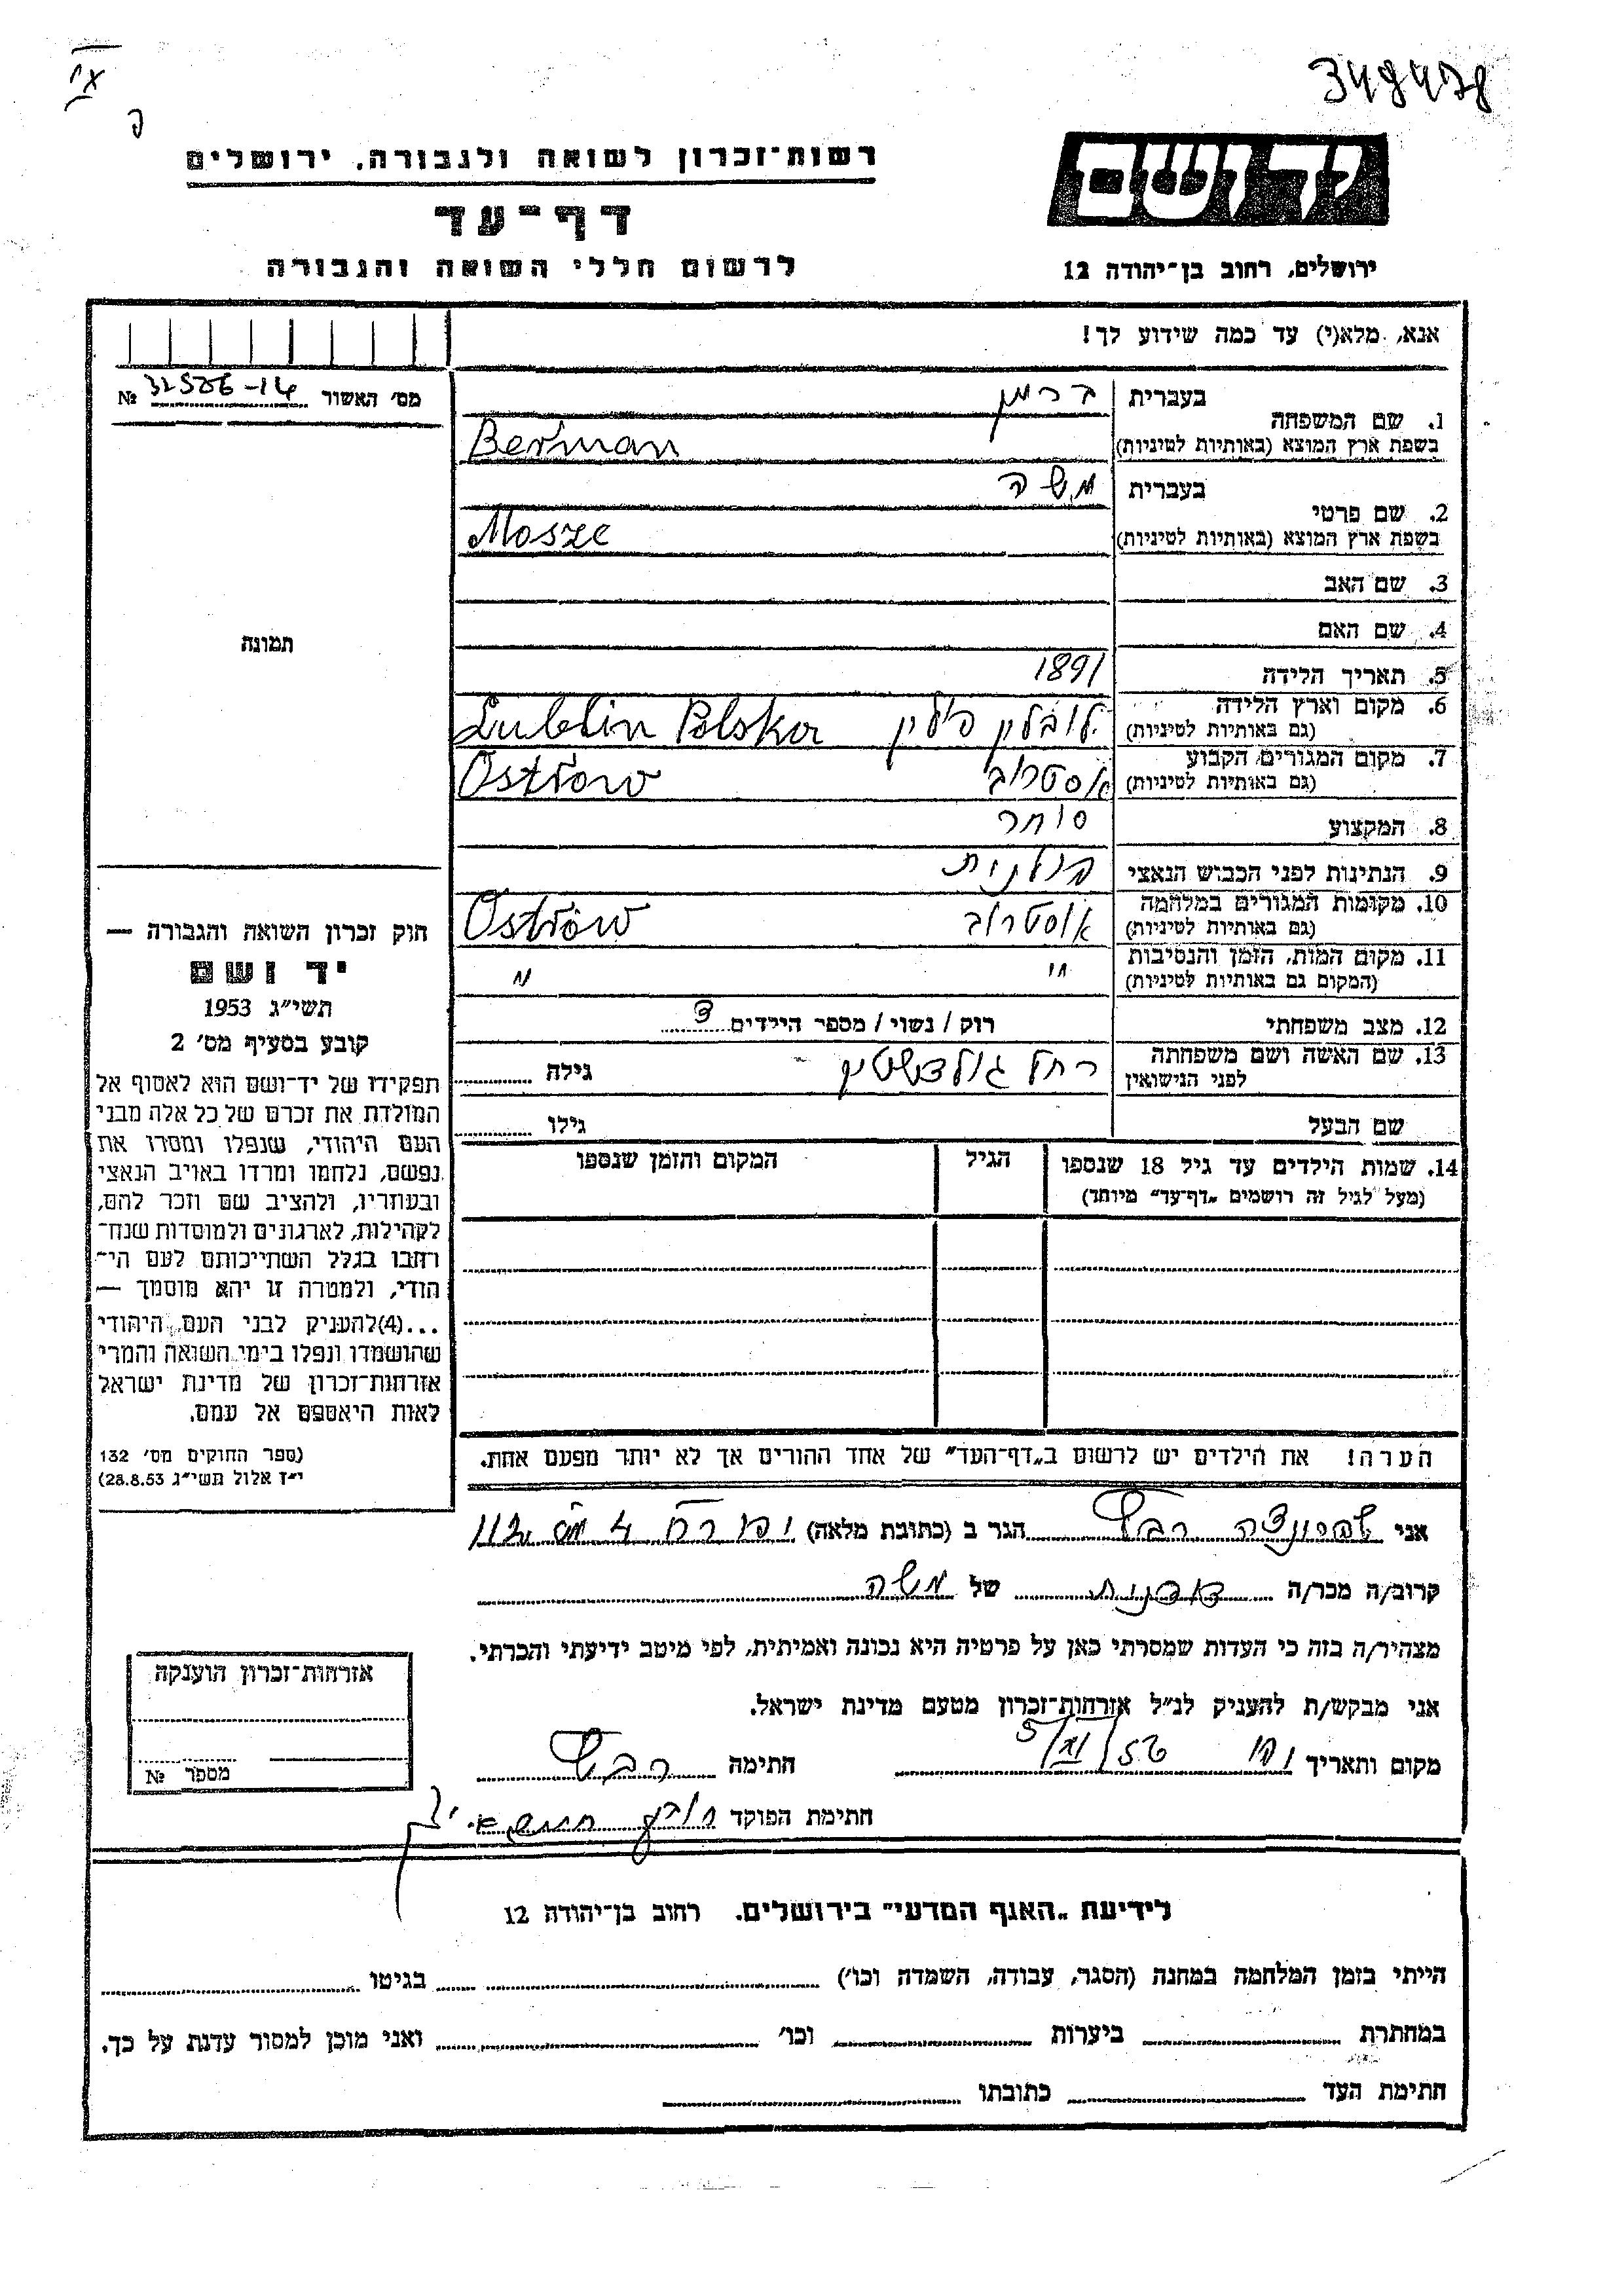 348478
רשות־זכרון לשואה ולגבורה, ירושלים
דף־עד
לרשום חללי השואה והגבורה
יד ושם
ירושלים, רחוב בן־יהודה 12
אנא, מלא(י) עד כמה שידוע לך!
מס׳ האשור 32586-14 №
תמונה
1. שם המשפחה
בעברית ברמן
בשפת ארץ המוצא (באותיות לטיניות) Berman
2. שם פרטי
בעברית משה
בשפת ארץ המוצא (באותיות לטיניות) Mosze
3. שם האב
4. שם האם
5. תאריך הלידה 1891
6. מקום וארץ הלידה
(גם באותיות לטיניות) לובלין פולין Lublin Polska
7. מקום המגורים הקבוע
(גם באותיות לטיניות) אוסטרוב Ostrów
8. המקצוע סוחר
9. הנתינות לפני הכבוש הנאצי פולנית
10. מקומות המגורים במלחמה
(גם באותיות לטיניות) אוסטרוב Ostrów
11. מקום המות, הזמן והנסיבות
(המקום גם באותיות לטיניות) " "
12. מצב משפחתי רוק / נשוי / מספר הילדים 3
13. שם האשה ושם משפחתה
לפני הנישואין רחל גולדשטין גילה
שם הבעל גילו
14. שמות הילדים עד גיל 18 שנספו הגיל המקום והזמן שנספו
(מעל לגיל זה רושמים „דף־עד” מיוחד)
הערה! את הילדים יש לרשום ב„דף־העד” של אחד ההורים אך לא יותר מפעם אחת.
חוק זכרון השואה והגבורה —
יד ושם
תשי״ג 1953
קובע בסעיף מס׳ 2
תפקידו של יד־ושם הוא לאסוף אל
המולדת את זכרם של כל אלה מבני
העם היהודי, שנפלו ומסרו את
נפשם, נלחמו ומרדו באויב הנאצי
ובעוזריו, ולהציב שם וזכר להם,
לקהילות, לארגונים ולמוסדות שנח־
רחבו בגלל השתייכותם לעם הי־
הודי, ולמטרה זו יהא מוסמך —
...(4)להעניק לבני העם היהודי
שהושמדו ונפלו בימי השואה והמרי
אזרחות־זכרון של מדינת ישראל
לאות היאספם אל עמם.
(ספר החוקים מס׳ 132
י״ז אלול תשי״ג 28.8.53)
אני הגר ב (כתובת מלאה)
קרוב/ה מכר/ה של משה
מצהיר/ה בזה כי העדות שמסרתי כאן על פרטיה היא נכונה ואמיתית, לפי מיטב ידיעתי והכרתי.
אני מבקש/ת להעניק לנ״ל אזרחות־זכרון מטעם מדינת ישראל.
מקום ותאריך חתימה
חתימת הפוקד
אזרחות־זכרון הוענקה
מספר №
לידיעת „האגף המדעי” בירושלים. רחוב בן־יהודה 12
הייתי בזמן המלחמה במחנה (הסגר, עבודה, השמדה וכו׳) בגיטו
במחתרת ביערות וכו׳ ואני מוכן למסור עדנת על כך.
חתימת העד כתובתו